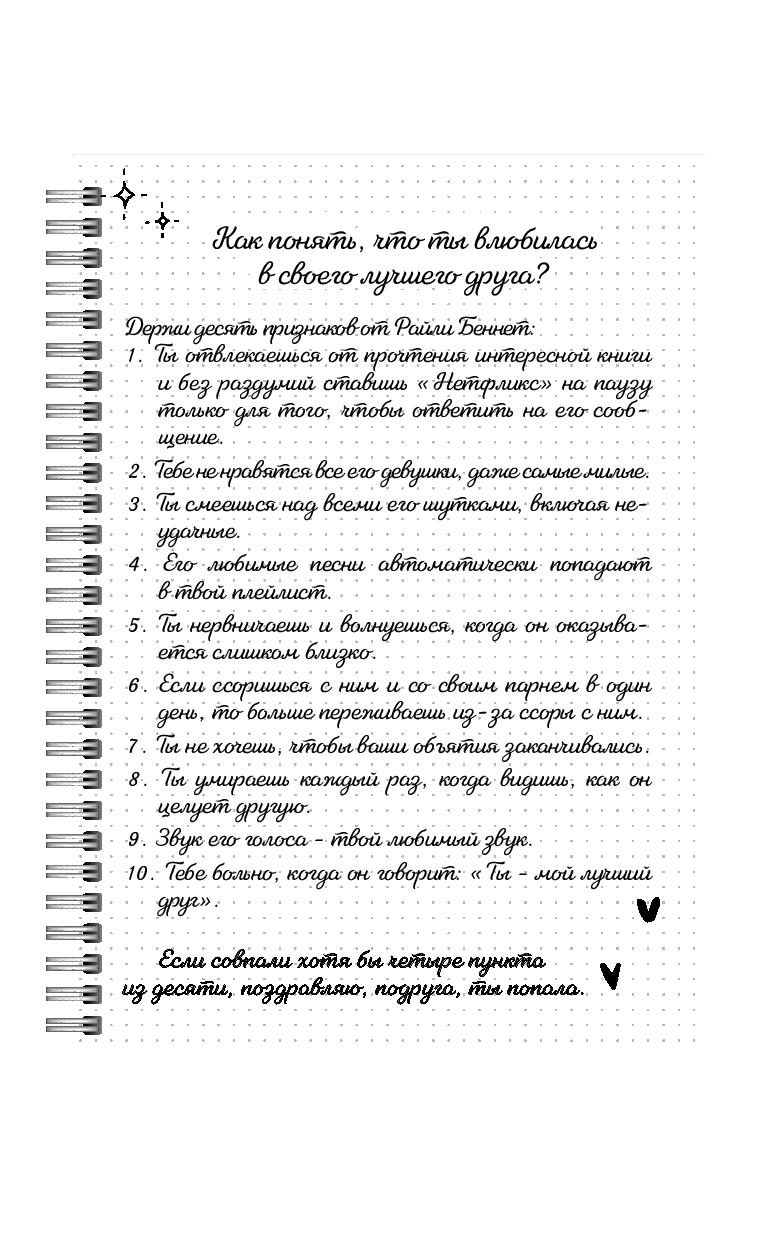 Как понять, что ты влюбилась
в своего лучшего друга?
Держи десять признаков от Райли Беннет:
1. Ты отвлекаешься от прочтения интересной книги
и без раздумий ставишь «Нетфликс» на паузу
только для того, чтобы ответить на его сооб-
щение.
2. Тебе не нравятся все его девушки, даже самые милые.
3. Ты смеешься над всеми его шутками, включая не-
удачные.
4. Его любимые песни автоматически попадают
в твой плейлист.
5. Ты нервничаешь и волнуешься, когда он оказыва-
ется слишком близко.
6. Если ссоришься с ним и со своим парнем в один
день, то больше переживаешь из-за ссоры с ним.
7. Ты не хочешь, чтобы ваши объятия заканчивались.
8. Ты умираешь каждый раз, когда видишь, как он
целует другую.
9. Звук его голоса – твой любимый звук.
10. Тебе больно, когда он говорит: «Ты – мой лучший
друг».
Если совпали хотя бы четыре пункта
из десяти, поздравляю, подруга, ты попала.